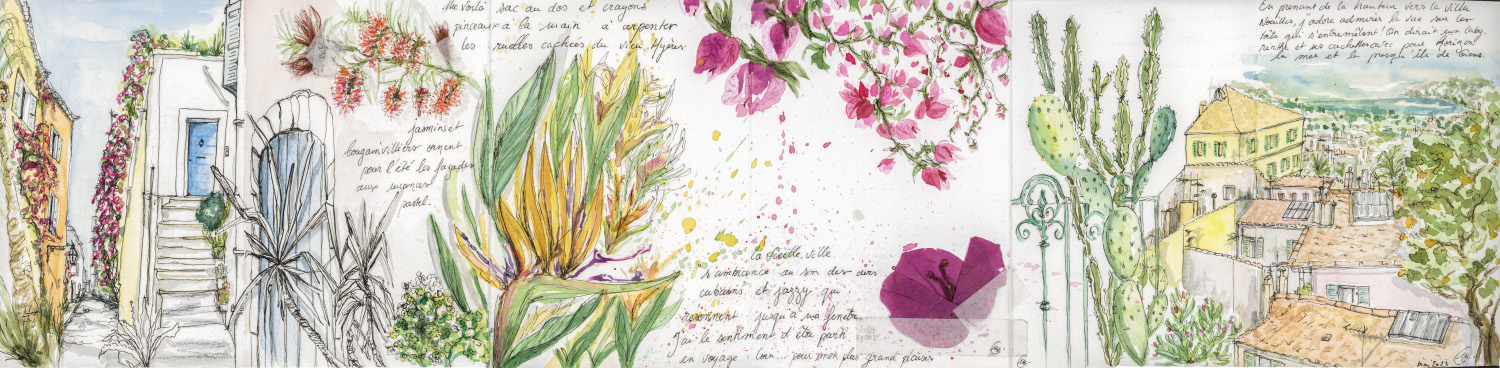 Me voilà sac au dos et crayons
pinceaux à la main à arpenter
les ruelles cachées du vieil Hyères
Jasmins et
bougainvilliers ornent
pour l'été les façades
aux nuances
pastel.
la vieille ville
s'ambiance au son des airs
cubains et jazzy qui
résonnent jusqu'à ma fenêtre
j'ai le sentiment d'être parti
en voyage loin... pour mon plus grand plaisir
En prenant de la hauteur vers la Villa
Noailles, j'adore admirer la vue sur les
toits qui s'entremêlent! On dirait un laby-
rinthe et ses cachettes avec pour horizon
la mer et la presqu'île de Giens.
mai 2023